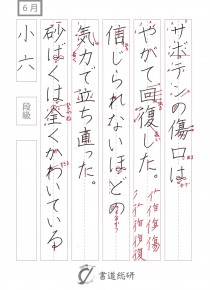 6月
小六
段級
サボテンの傷口は
やがて回復した。
信じられないほどの
気力で立ち直った。
砂ばくは全くかわいている
書道総研